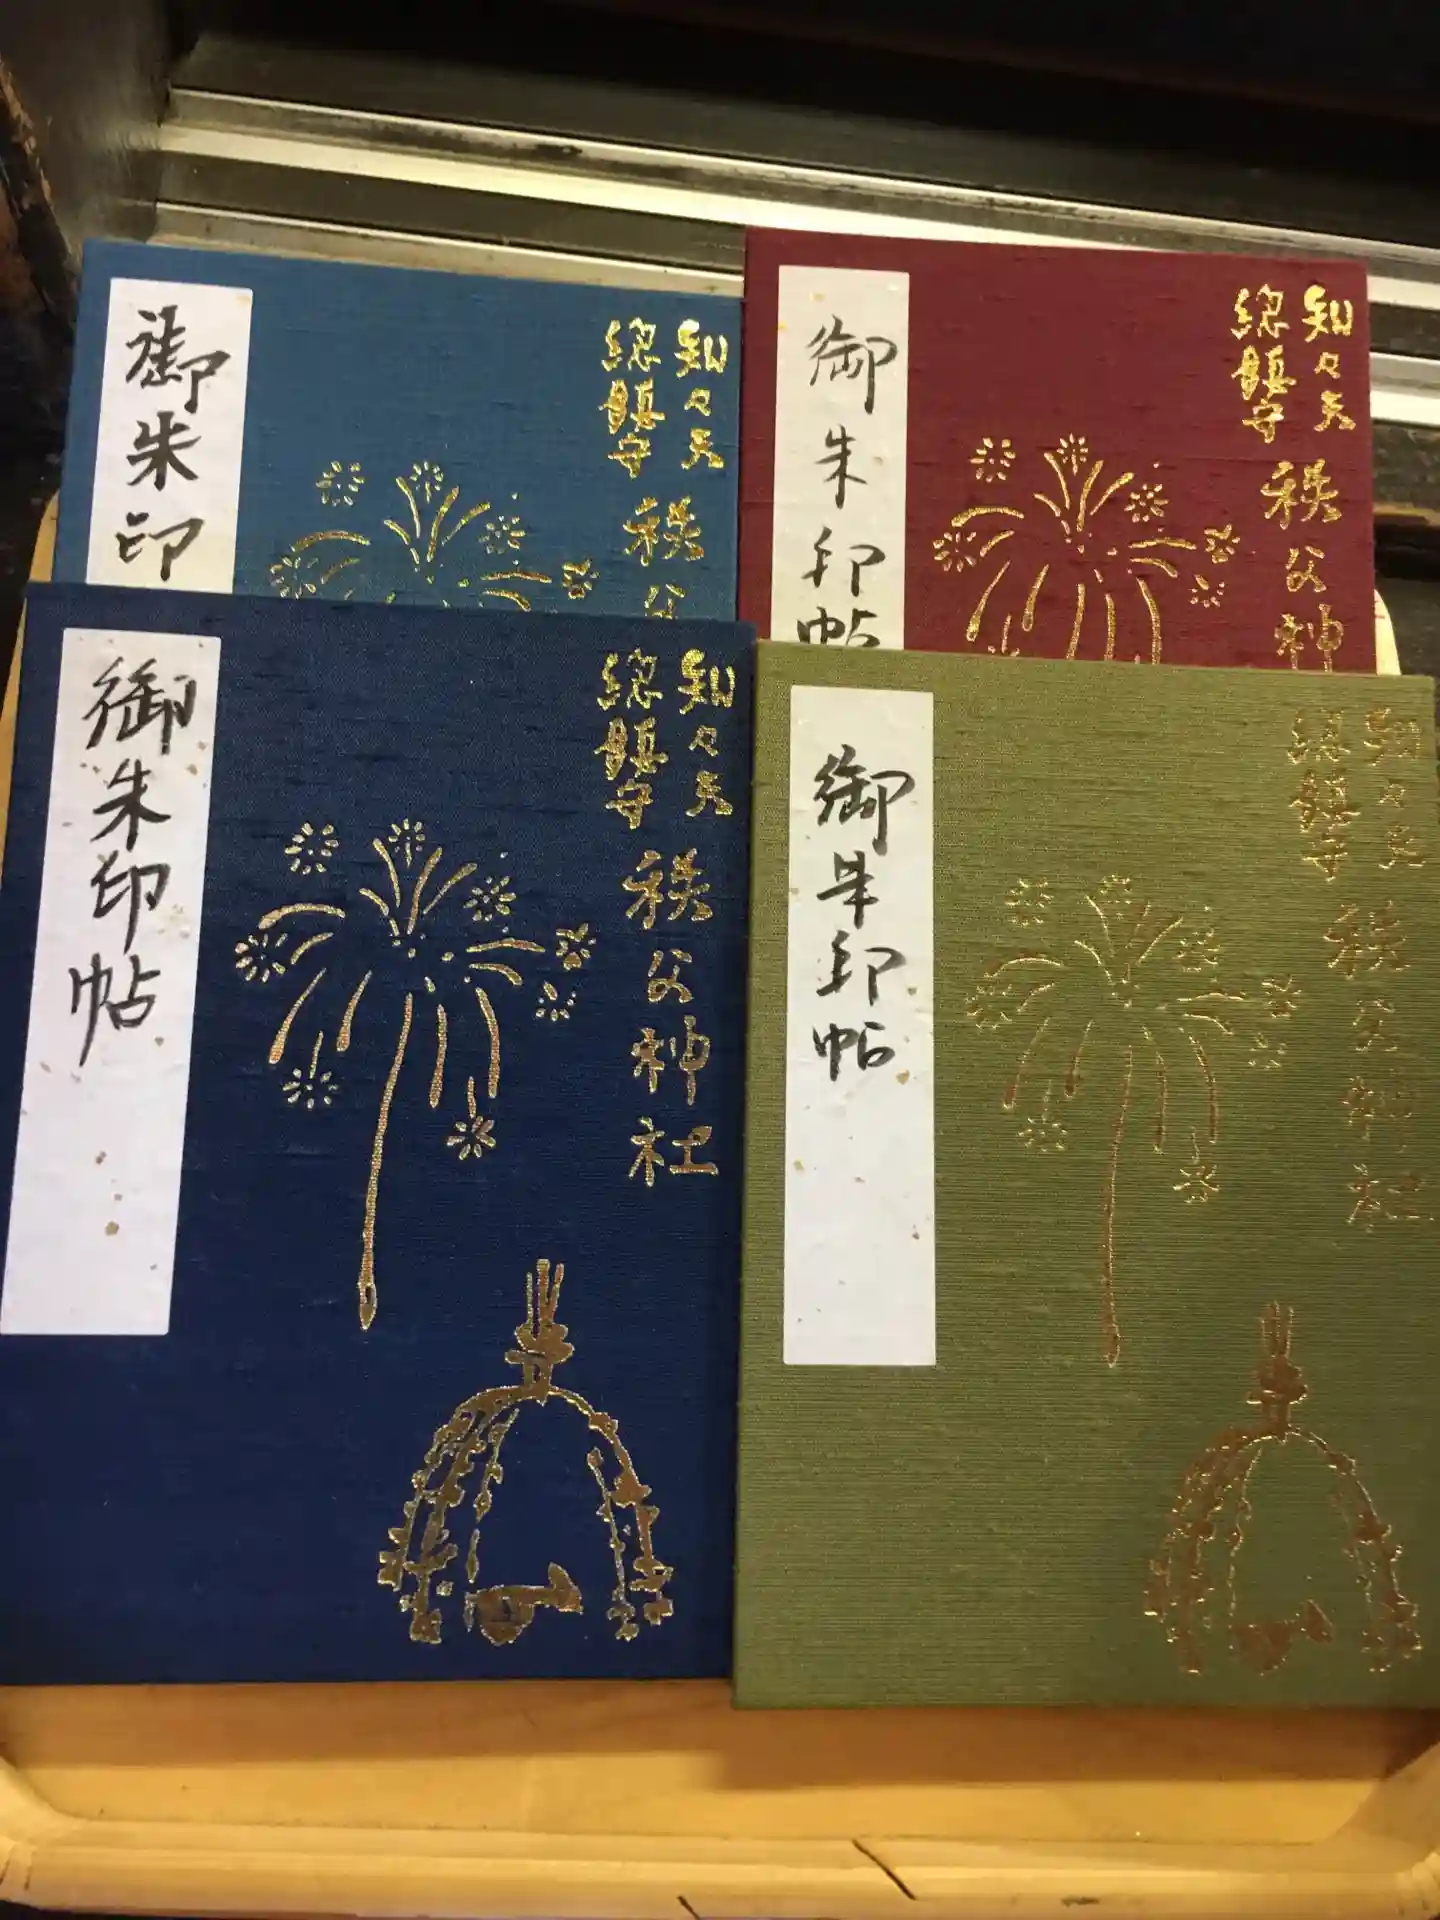 御朱印
知々夫
総鎮守
秩父
御朱印帖
知々夫
総鎮守
秩父神
御朱印帖
知々夫
総鎮守
秩父神社
御朱印帖
知々夫
総鎮守
秩父神社